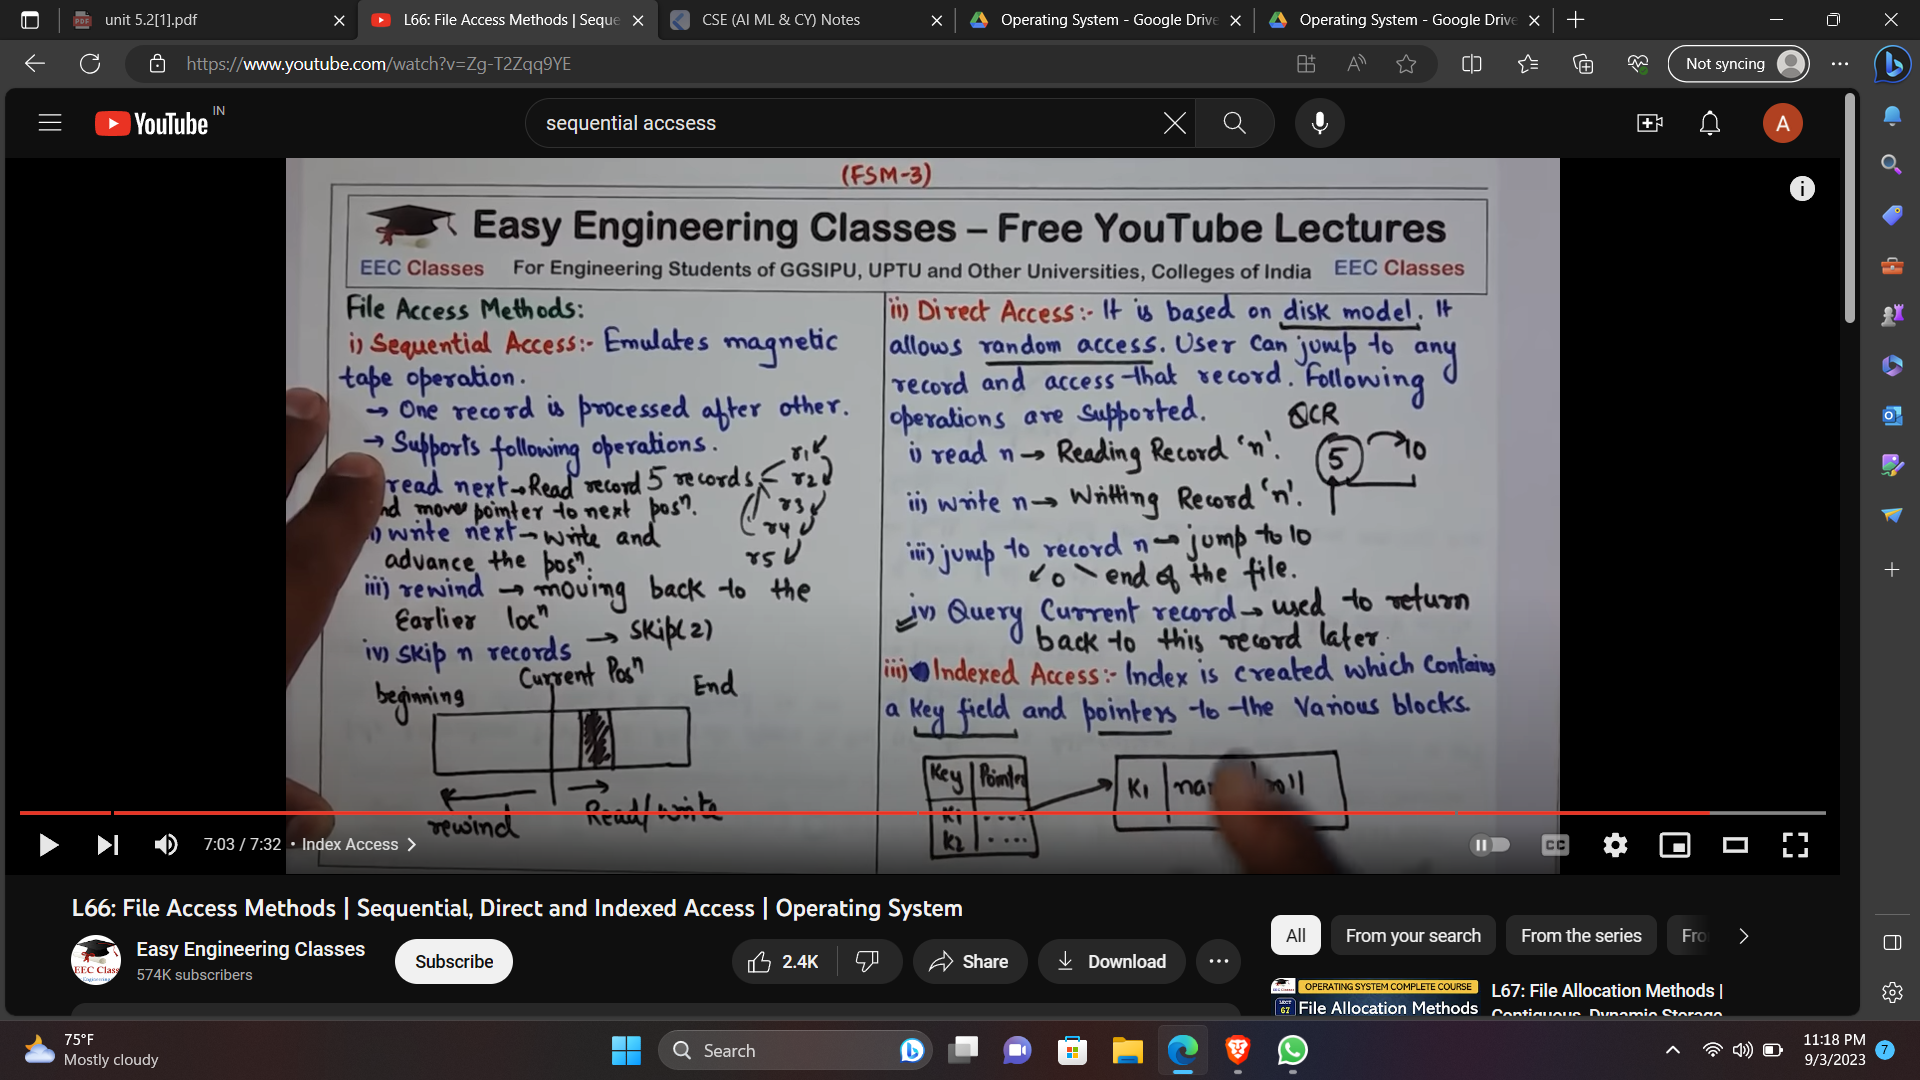 unit 5.2[1].pdf
L66: File Access Methods | Seque
CSE (AI ML & CY) Notes
Operating System - Google Drive
Operating System - Google Drive
https://www.youtube.com/watch?v=Zg-T2Zqq9YE
Not syncing
YouTube IN
sequential accsess
A
(FSM-3)
Easy Engineering Classes – Free YouTube Lectures
EEC Classes For Engineering Students of GGSIPU, UPTU and Other Universities, Colleges of India EEC Classes
File Access Methods:
i) Sequential Access:- Emulates magnetic
tape operation.
→ One record is processed after other.
→ Supports following operations.
read next → Read record 5 records
nd move pointer to next posn.
r1
r2
r3
r4
r5
) write next → write and
advance the posn.
iii) rewind → moving back to the
Earlier locn
iv) skip n records → skip(2)
beginning
Current Posn
End
rewind
Read/write
ii) Direct Access:- It is based on disk model. It
allows random access. User can jump to any
record and access that record. Following
operations are supported.
QCR
i) read n → Reading Record 'n'.
5
10
ii) write n → Writting Record 'n'.
iii) jump to record n → jump to 10
0 end of the file.
iv) Query Current record → used to return
back to this record later.
iii) Indexed Access:- Index is created which contains
a key field and pointers to the various blocks.
Key Pointer
K1 ....
K2 ....
K1
7:03 / 7:32 • Index Access
CC
L66: File Access Methods | Sequential, Direct and Indexed Access | Operating System
EEC Class
Easy Engineering Classes
574K subscribers
Subscribe
2.4K
Share
Download
All
From your search
From the series
Fro
OPERATING SYSTEM COMPLETE COURSE
LECT 67
File Allocation Methods
L67: File Allocation Methods |
Contiguous, Dynamic Storage
75°F
Mostly cloudy
Search
11:18 PM
9/3/2023
7